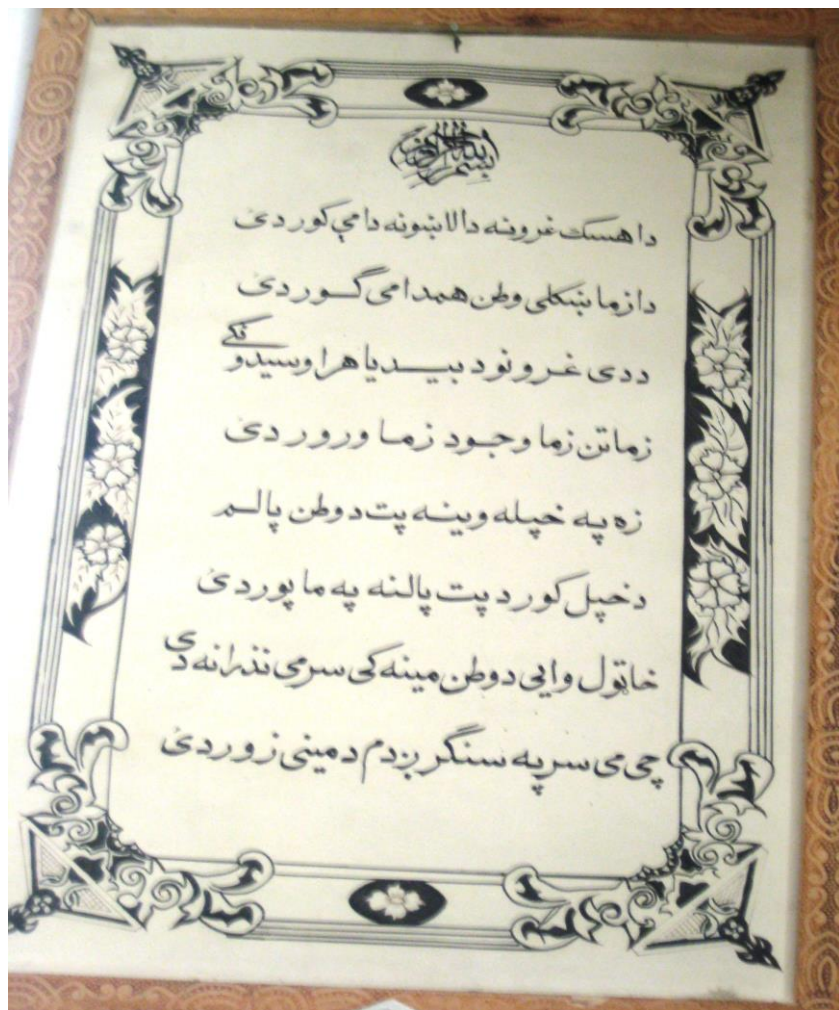 بسم الله الرحمن الرحیم
دا هسک غرونه دا لاښونه دا مې کور دئ
دا زما ښکلی وطن همدا می گور دئ
ددی غرونو د بیدیا هر اوسیدونکی
زما تن زما وجود زما ورور دئ
زه په خپله وینه پت د وطن پالم
د خپل کور د پت پالنه په ما پور دئ
خاټول وایی د وطن مینه کی سر می نذرانه دی
چی می سر په سنگر ږدم د مینی زور دئ